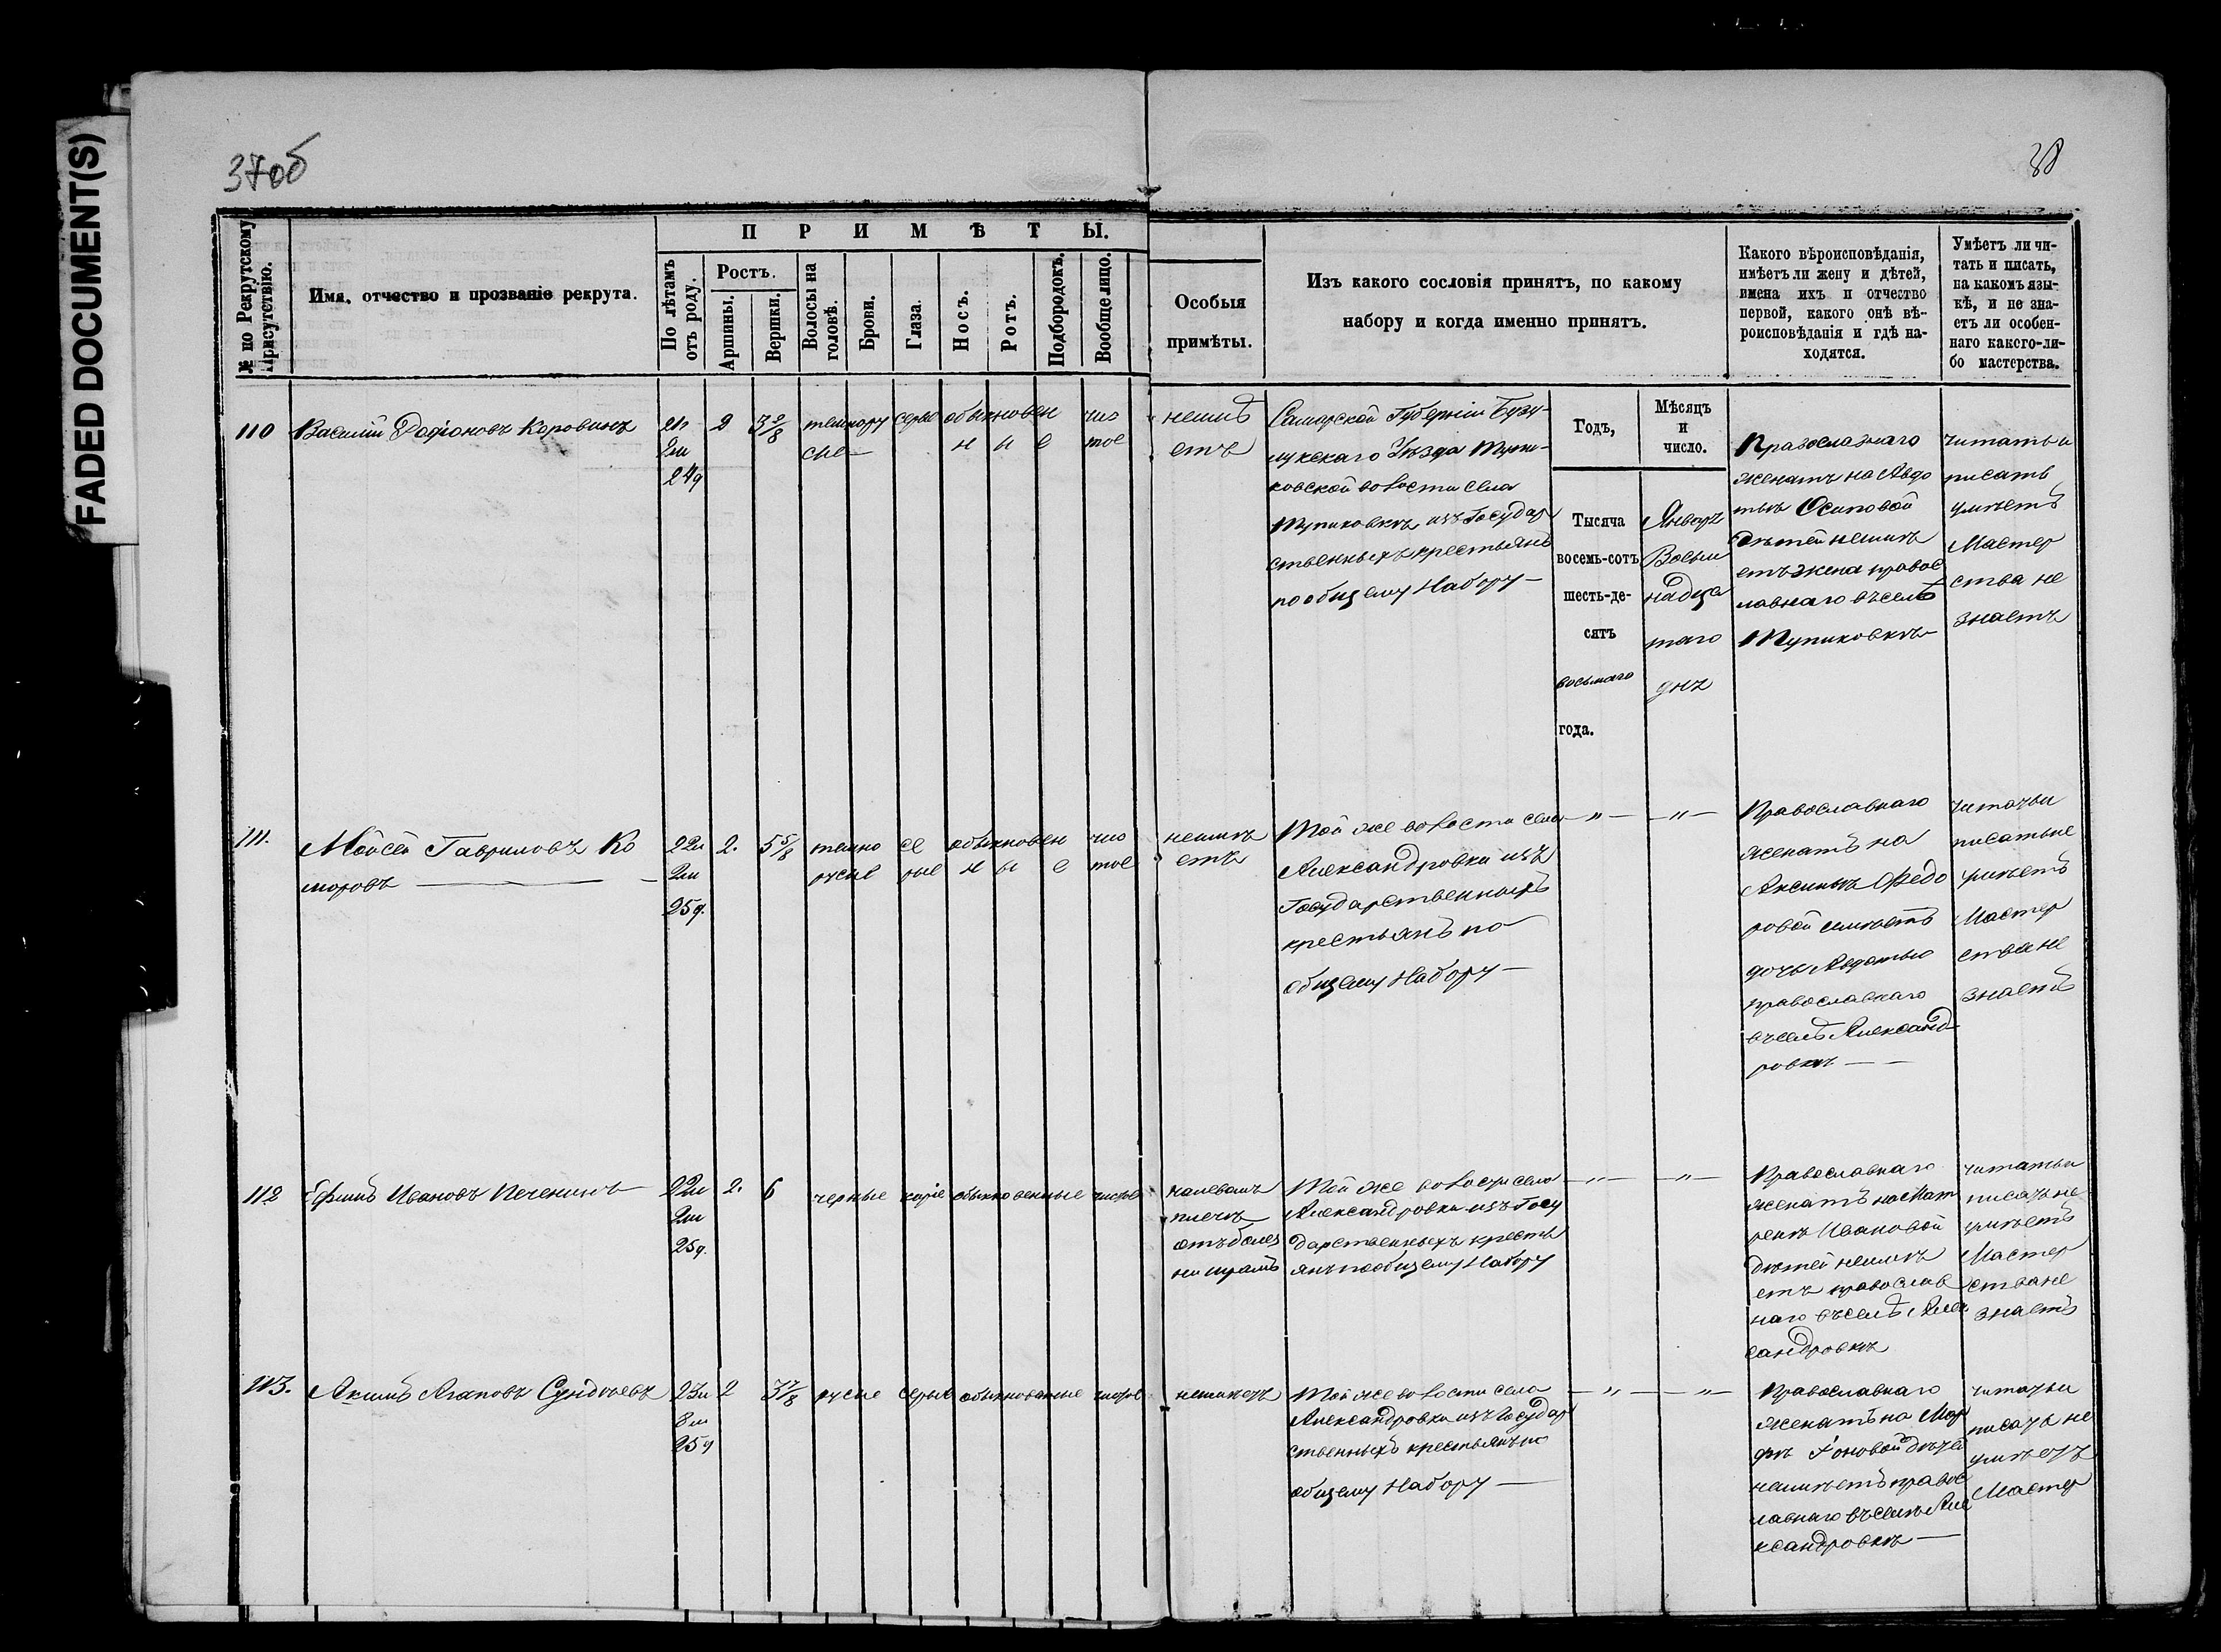 FADED DOCUMENT(S)
37об
38
№ по Рекрутскому Присутствію.
Имя, отчество и прозваніе рекрута.
ПРИМѢТЫ.
По лѣтамъ отъ роду.
Ростъ.
Аршины.
Вершки.
Волосы на головѣ.
Брови.
Глаза.
Носъ.
Ротъ.
Подбородокъ.
Вообще лицо.
Особыя
примѣты.
Изъ какого сословія принятъ, по какому
набору и когда именно принятъ.
Какого вѣроисповѣданія,
имѣетъ ли жену и дѣтей,
имена ихъ и отчество
первой, какого онѣ вѣ-
роисповѣданія и гдѣ на-
ходятся.
Умѣетъ ли чи-
тать и писать,
на какомъ язы-
кѣ, и не зна-
етъ ли особен-
наго какого-ли-
бо мастерства.
110 Василій Родіоновъ Коровинъ
21л
2м
24д
2
3 2/8
темнору
сые
серые
обыкновен
ные
чис
тое
неимѣ
етъ
Самарской Губерніи Бузу-
лукскаго Уѣзда
ковской волости села
изъ Государ
ственныхъ крестьянъ
по общему Набору
Годъ,
Тысяча
восемь-сотъ
шесть-де-
сятъ
восьмаго
года.
Мѣсяцъ
и
число.
Январь
Восьм
надца
таго
дня
Православнаго
женатъ на Авдо
тьѣ Осиповой
дѣтей неимѣ
етъ жена правос
лавнаго въ селѣ
читать и
писать
умѣетъ
Мастер
ства не
знаетъ
111. Мойсей Гавриловъ Ко
маровъ
22л
2м
25д.
2.
5 5/8
темно
русые
се
рые
обыкновен
ные
чис
тое
неимѣ
етъ
Той же волости села
Александровки изъ
Государственныхъ
крестьянъ по
общему Набору
" "
Православнаго
женатъ на
Аксиньѣ Федо
ровой имѣетъ
дочь Авдотью
православнаго
въ селѣ Александ
ровкѣ
читать и
писать не
умѣетъ
Мастер
ства не
знаетъ
112 Ефимъ Ивановъ Печенинъ
22л
2м
25д.
2.
6
черные
каріе
обыкновенные
чистое
на левомъ
плечѣ
отъ болез
ни шрамъ
Той же волости села
Александровки изъ Госу
дарственныхъ кресть
янъ по общему Набору
" "
Православнаго
женатъ на Мат
ренѣ Ивановой
дѣтей неимѣ
етъ православ
наго въ селѣ Алек
сандровкѣ
читать и
писать не
умѣетъ
Мастер
ства не
знаетъ
113. Акимъ Агаповъ
23л
8м
25д
2
3 7/8
русые
серые
обыкновенные
чистое
неимѣетъ
Той же волости села
Александровки изъ Государ
ственныхъ крестьянъ по
общему Набору
" "
Православнаго
женатъ на Мар
фѣ дѣтей
неимѣетъ правос
лавнаго въ селѣ Але
ксандровкѣ
читать и
писать не
умѣетъ
Мастер